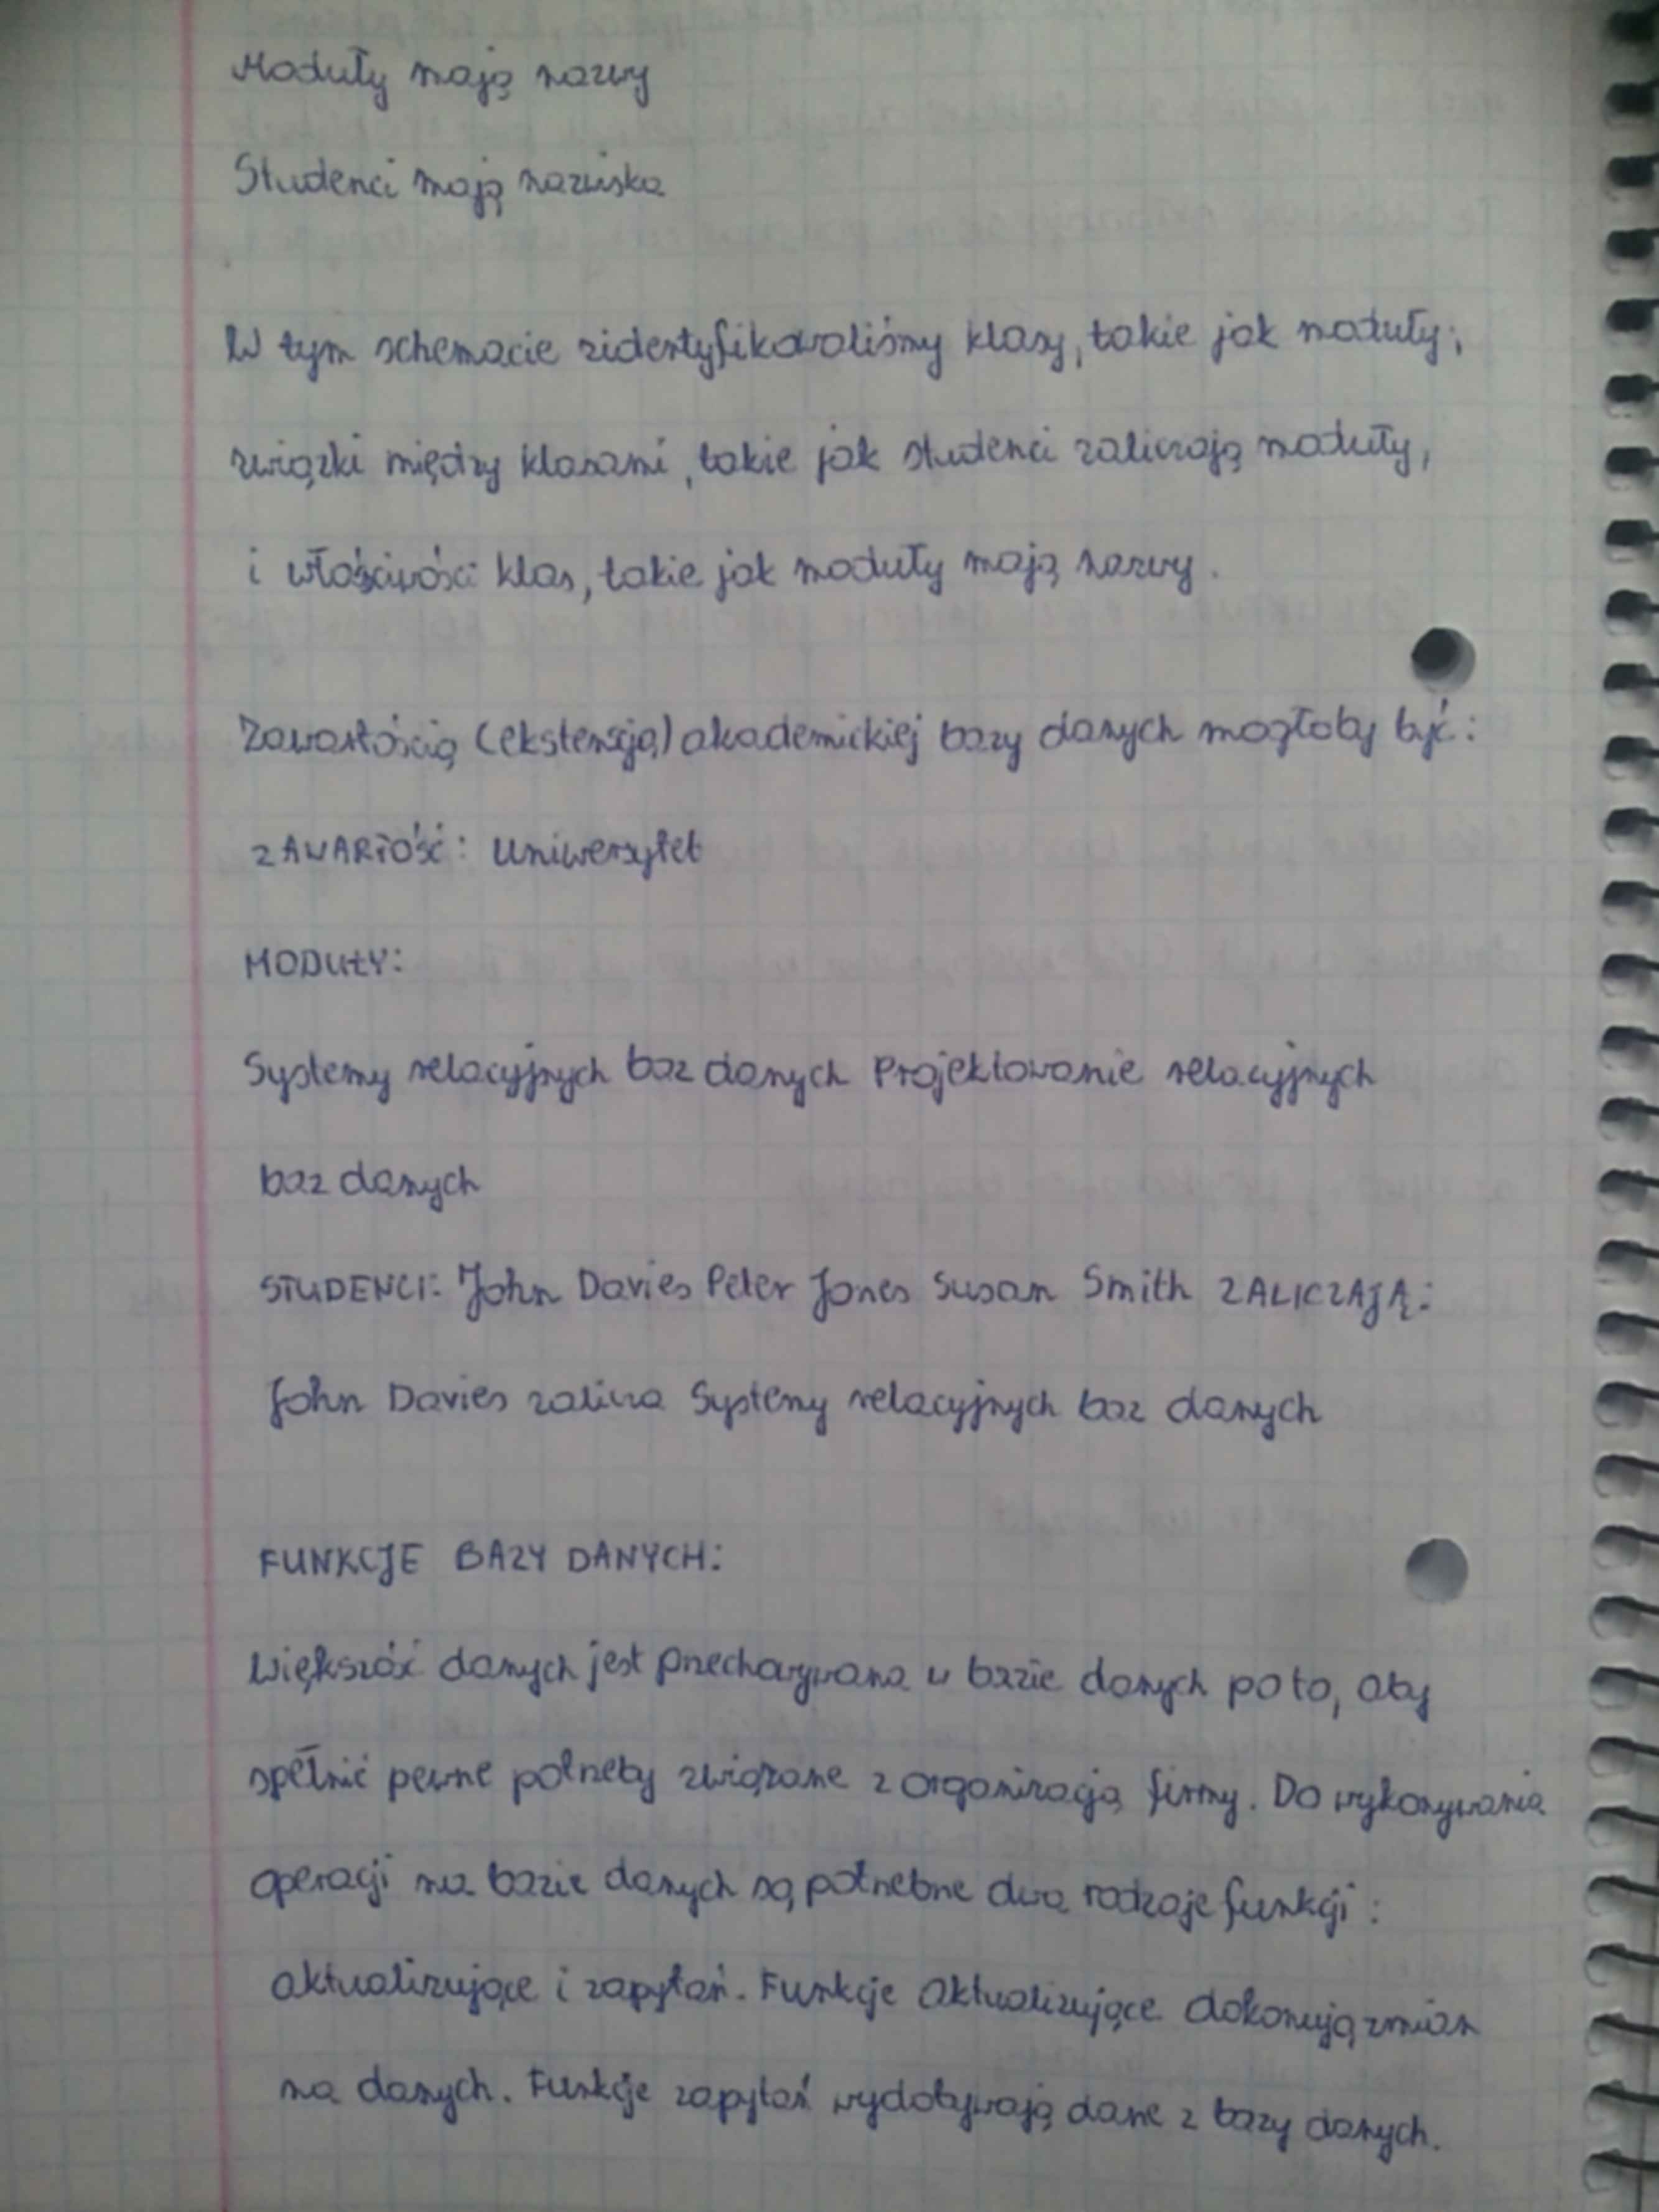 Moduły mają nazwy
Studenci mają nazwiska
W tym schemacie zidentyfikowaliśmy klasy, takie jak moduły;
związki między klasami, takie jak studenci zaliczają moduły,
i właściwości klas, takie jak moduły mają nazwy.
Zawartością (ekstensją) akademickiej bazy danych mogłoby być:
ZAWARTOŚĆ: Uniwersytet
MODUŁY:
Systemy relacyjnych baz danych Projektowanie relacyjnych
baz danych
STUDENCI: John Davies Peter Jones Susan Smith ZALICZAJĄ:
John Davies zalicza Systemy relacyjnych baz danych
FUNKCJE BAZY DANYCH:
Większość danych jest przechowywana w bazie danych po to, aby
spełnić pewne potrzeby związane z organizacją firmy. Do wykonywania
operacji na bazie danych są potrzebne dwa rodzaje funkcji:
aktualizujące i zapytań. Funkcje aktualizujące dokonują zmian
na danych. Funkcje zapytań wydobywają dane z bazy danych.